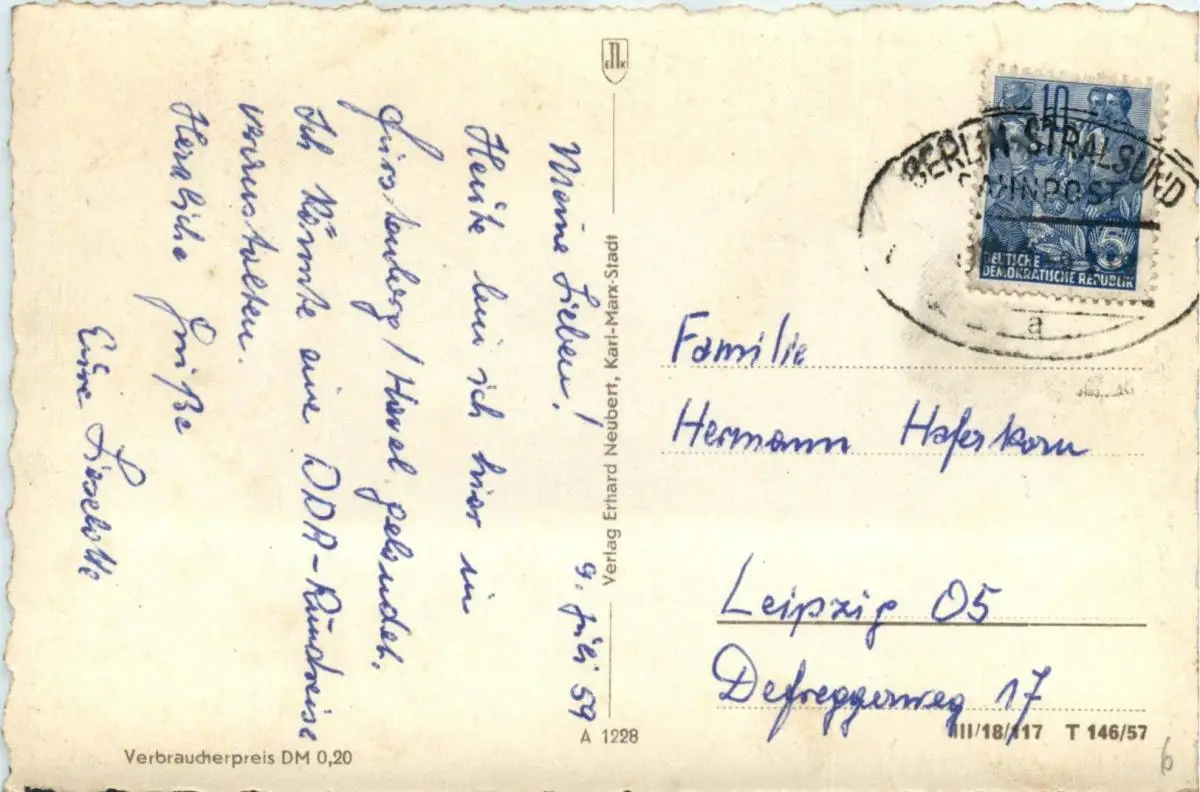 9. Juli 59
Meine Lieben!
Heute bin ich hier in
Fürstenberg/Havel gelandet.
Ich könnte eine DDR-Rundreise
veranstalten.
Herzliche Grüße
Eure Liselotte
E N K
Verlag Erhard Neubert, Karl-Marx-Stadt
A 1228
Verbraucherpreis DM 0,20
10
5
DEUTSCHE
DEMOKRATISCHE REPUBLIK
BERLIN-STRALSUND
BAHNPOST
a
Familie
Hermann Haferkorn
Leipzig O5
Defreggerweg 17
III/18/117 T 146/57
6